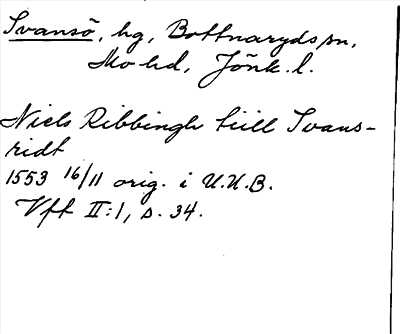 Svansö, hg, Bottnaryds sn,
Mo hd, Jönk. l.
Niels Ribbingh till Svans-
ridt
1553 16/11 orig. i U.U.B.
Vft II:1, s. 34.